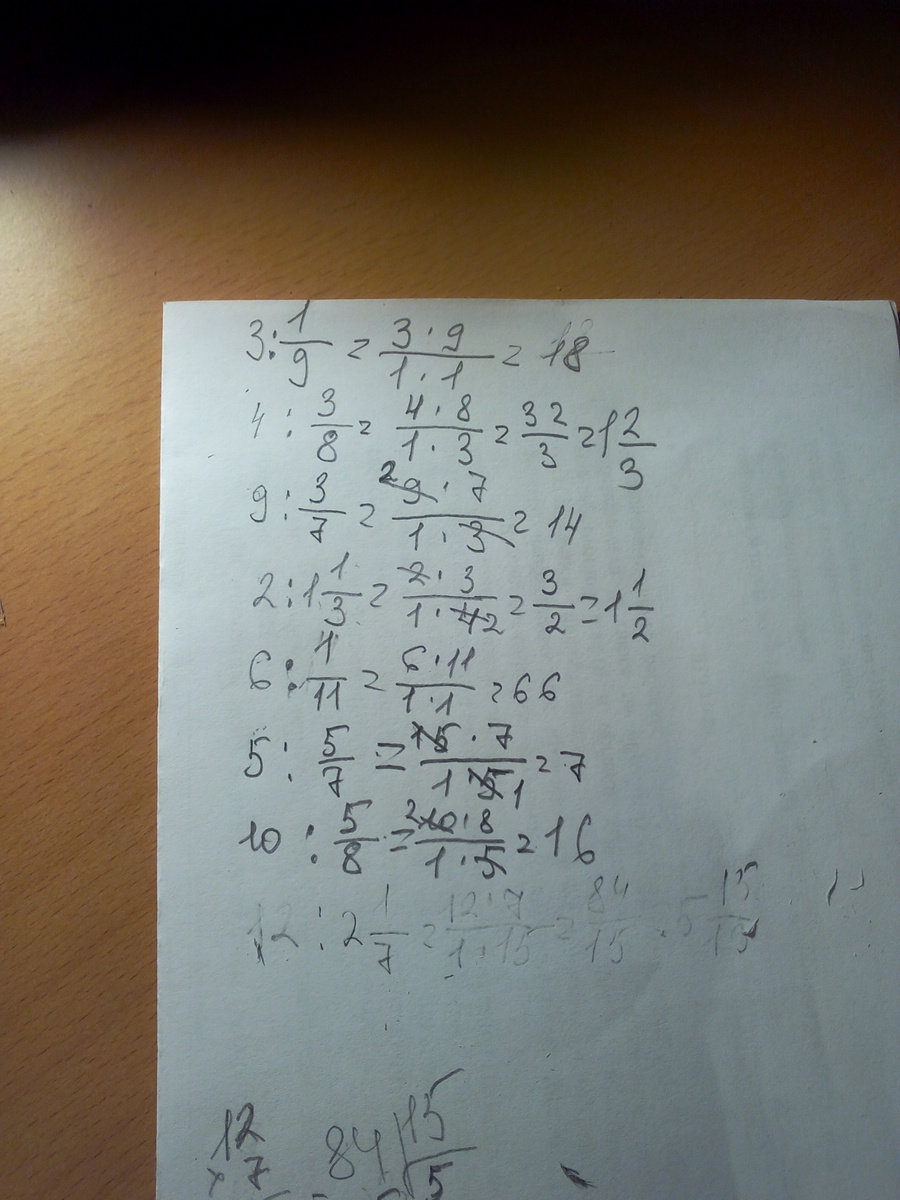 3 : 1/9 = 3 · 9 / 1 · 1 = 18
4 : 3/8 = 4 · 8 / 1 · 3 = 32/3 = 1 2/3
9 : 3/7 = 2 9 · 7 / 1 · 3 = 14
2 : 1 1/3 = 2 · 3 / 1 · 4 2 = 3/2 = 1 1/2
6 : 1/11 = 6 · 11 / 1 · 1 = 66
5 : 5/7 = 1 5 · 7 / 1 5 1 = 7
10 : 5/8 = 2 10 · 8 / 1 · 5 = 16
12 : 2 1/7 = 12 · 7 / 1 · 15 = 84/15 5 15/15
12 84 15
× 7 5